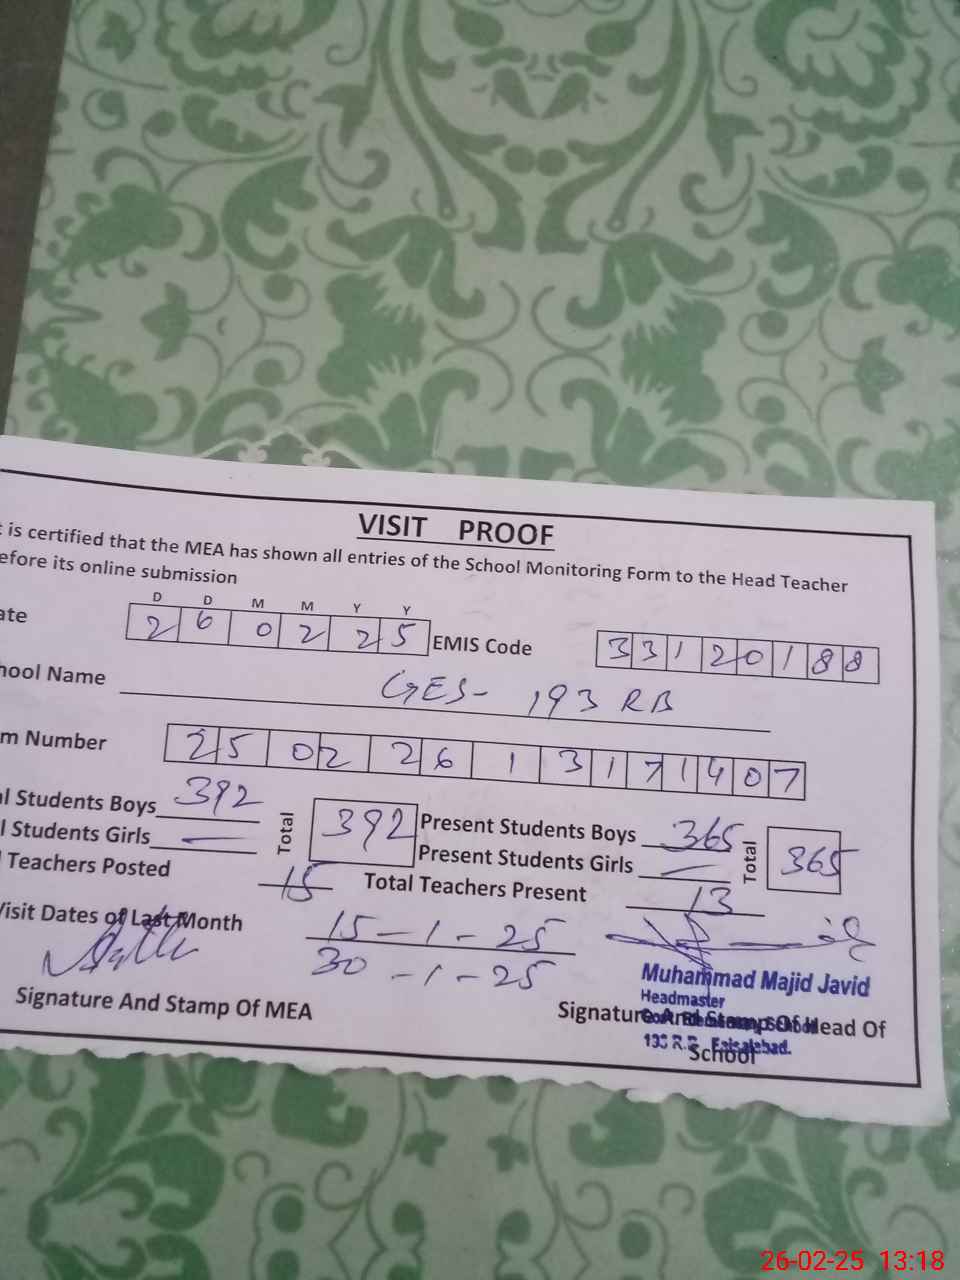 VISIT PROOF
t is certified that the MEA has shown all entries of the School Monitoring Form to the Head Teacher
efore its online submission
D D M M Y Y
ate 2 6 0 2 2 5 EMIS Code 3 3 1 2 0 1 8 8
hool Name GES- 193 RB
m Number 2 5 0 2 2 6 1 3 1 7 1 4 0 7
l Students Boys 392 Total 392 Present Students Boys 365 Total 365
l Students Girls — Present Students Girls —
l Teachers Posted 15 Total Teachers Present 13
Visit Dates of Last Month 15-1-25
30-1-25
Muhammad Majid Javid
Headmaster
193 R.B. Faisalabad.
Signature And Stamp Of MEA
Signature And Stamp Of Head Of
School
26-02-25 13:18